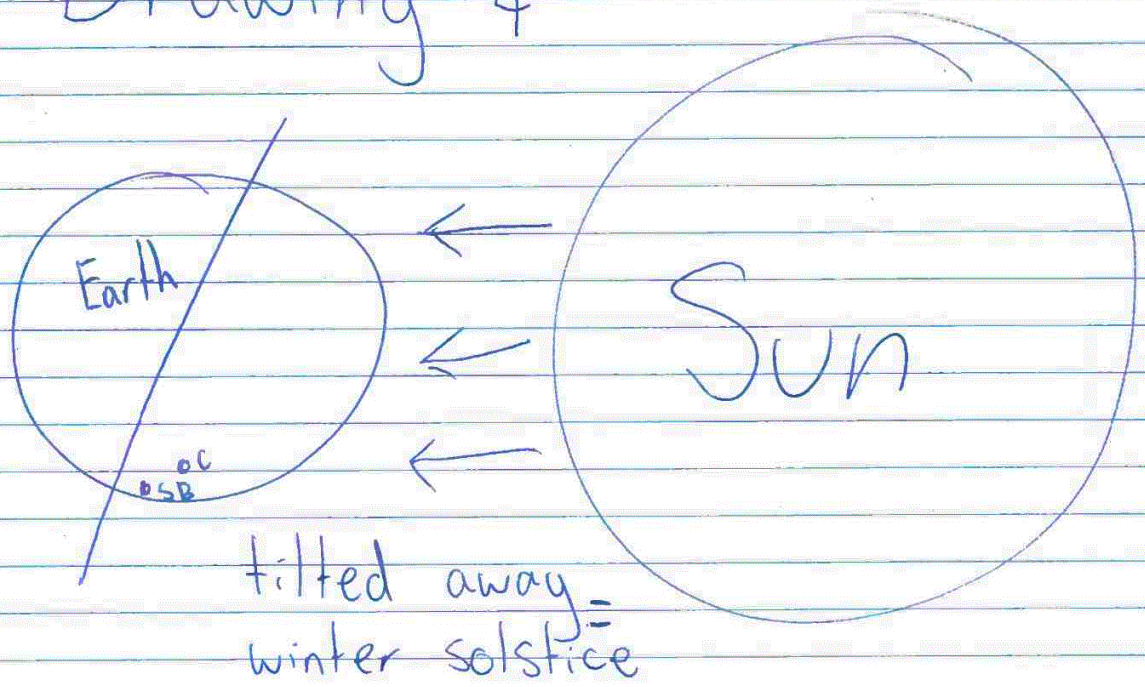 Drawing 4
Earth
Sun
C
SB
tilted away =
winter solstice